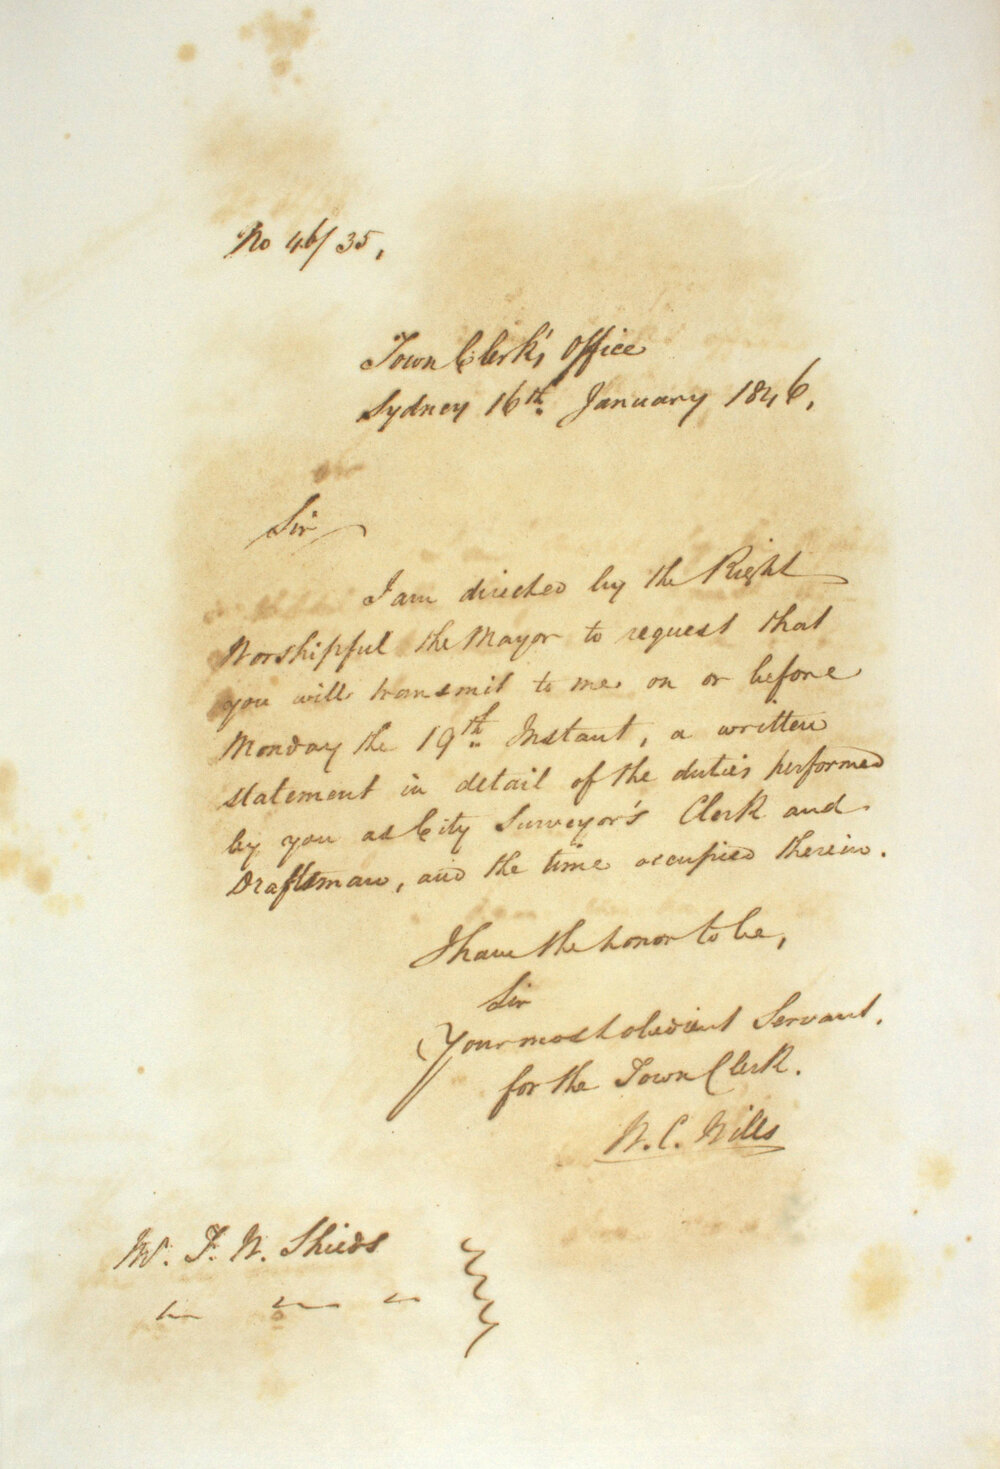 No 46/35,
Town Clerk's Office
Sydney 16th. January 1846,
Sir
I am directed by the Right
Worshipful the Mayor to request that
you will transmit to me on or before
Monday the 19th. Instant, a written
statement in detail of the duties performed
by you as City Surveyor's Clerk and
Draftsman, and the time occupied therein.
I have the honor to be,
Sir
Your most obedient Servant.
for the Town Clerk.
W. C. Wills
Mr. F. W. Shields